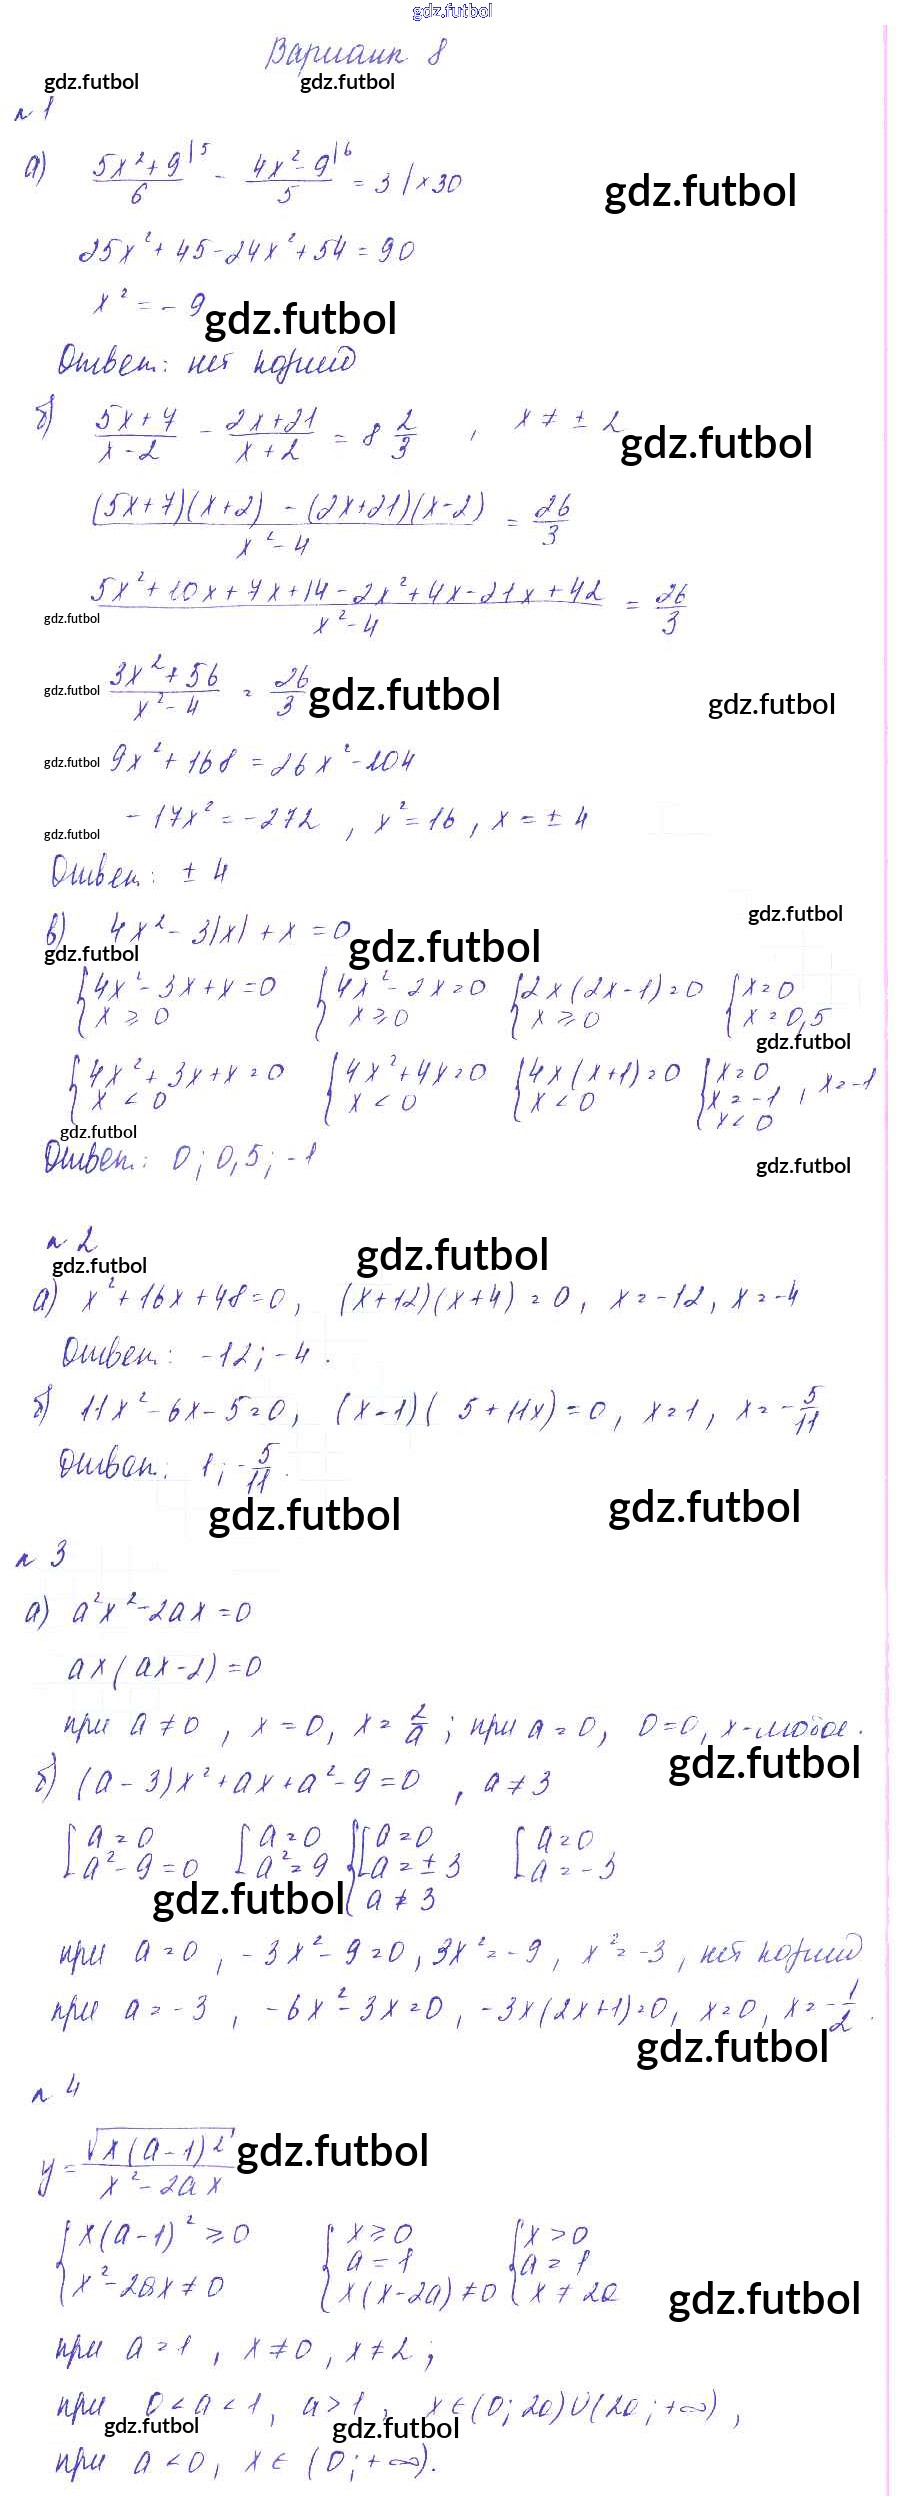 gdz.futbol
Вариант 8
gdz.futbol gdz.futbol
№ 1
а) (5x²+9)/6 |5 - (4x²-9)/5 |6 = 3 | ×30
gdz.futbol
25x² + 45 - 24x² + 54 = 90
x² = - 9
gdz.futbol
Ответ: нет корней
б) (5x+7)/(x-2) - (2x+21)/(x+2) = 8 2/3 , x ≠ ± 2
gdz.futbol
((5x+7)(x+2) - (2x+21)(x-2))/(x²-4) = 26/3
(5x²+10x+7x+14-2x²+4x-21x+42)/(x²-4) = 26/3
gdz.futbol
(3x²+56)/(x²-4) = 26/3
gdz.futbol gdz.futbol gdz.futbol
9x²+168 = 26x²-104
gdz.futbol
-17x² = -272 , x²=16 , x = ± 4
gdz.futbol
Ответ: ± 4
gdz.futbol
в) 4x² - 3|x| + x = 0
gdz.futbol gdz.futbol
{4x²-3x+x=0 {4x²-2x=0 {2x(2x-1)=0 {x=0
x ≥ 0 x ≥ 0 x ≥ 0 x=0,5
gdz.futbol
{4x²+3x+x=0 {4x²+4x=0 {4x(x+1)=0 {x=0
x < 0 x < 0 x < 0 x=-1 , x=-1
x < 0
gdz.futbol
Ответ: 0; 0,5; -1
gdz.futbol
№ 2
gdz.futbol gdz.futbol
а) x²+16x+48=0, (x+12)(x+4)=0, x=-12, x=-4
Ответ: -12; -4.
б) 11x²-6x-5=0, (x-1)( 5+11x)=0, x=1, x=-5/11
Ответ: 1; -5/11.
gdz.futbol gdz.futbol
№ 3
а) a²x²-2ax=0
ax(ax-2)=0
при a≠0 , x=0, x=2/a ; при a=0, 0=0, x-любое.
gdz.futbol
б) (a-3)x²+ax+a²-9=0 , a≠3
[a=0 [a=0 {[a=0 [a=0
a²-9=0 a²=9 a=±3 a=-3
a≠3
gdz.futbol
при a=0 , -3x²-9=0, 3x²=-9, x²=-3, нет корней
при a=-3 , -6x²-3x=0, -3x(2x+1)=0, x=0, x=-1/2.
gdz.futbol
№ 4
y = √(x(a-1)²)/(x²-2ax)
gdz.futbol
{x(a-1)² ≥ 0 {x ≥ 0 {x > 0
x²-2ax≠0 a=1 a=1
x(x-2a)≠0 x≠2a
gdz.futbol
при a=1 , x≠0, x≠2;
при 0<a<1, a>1, x∈(0;2a)∪(2a;+∞),
gdz.futbol gdz.futbol
при a<0, x∈(0;+∞).